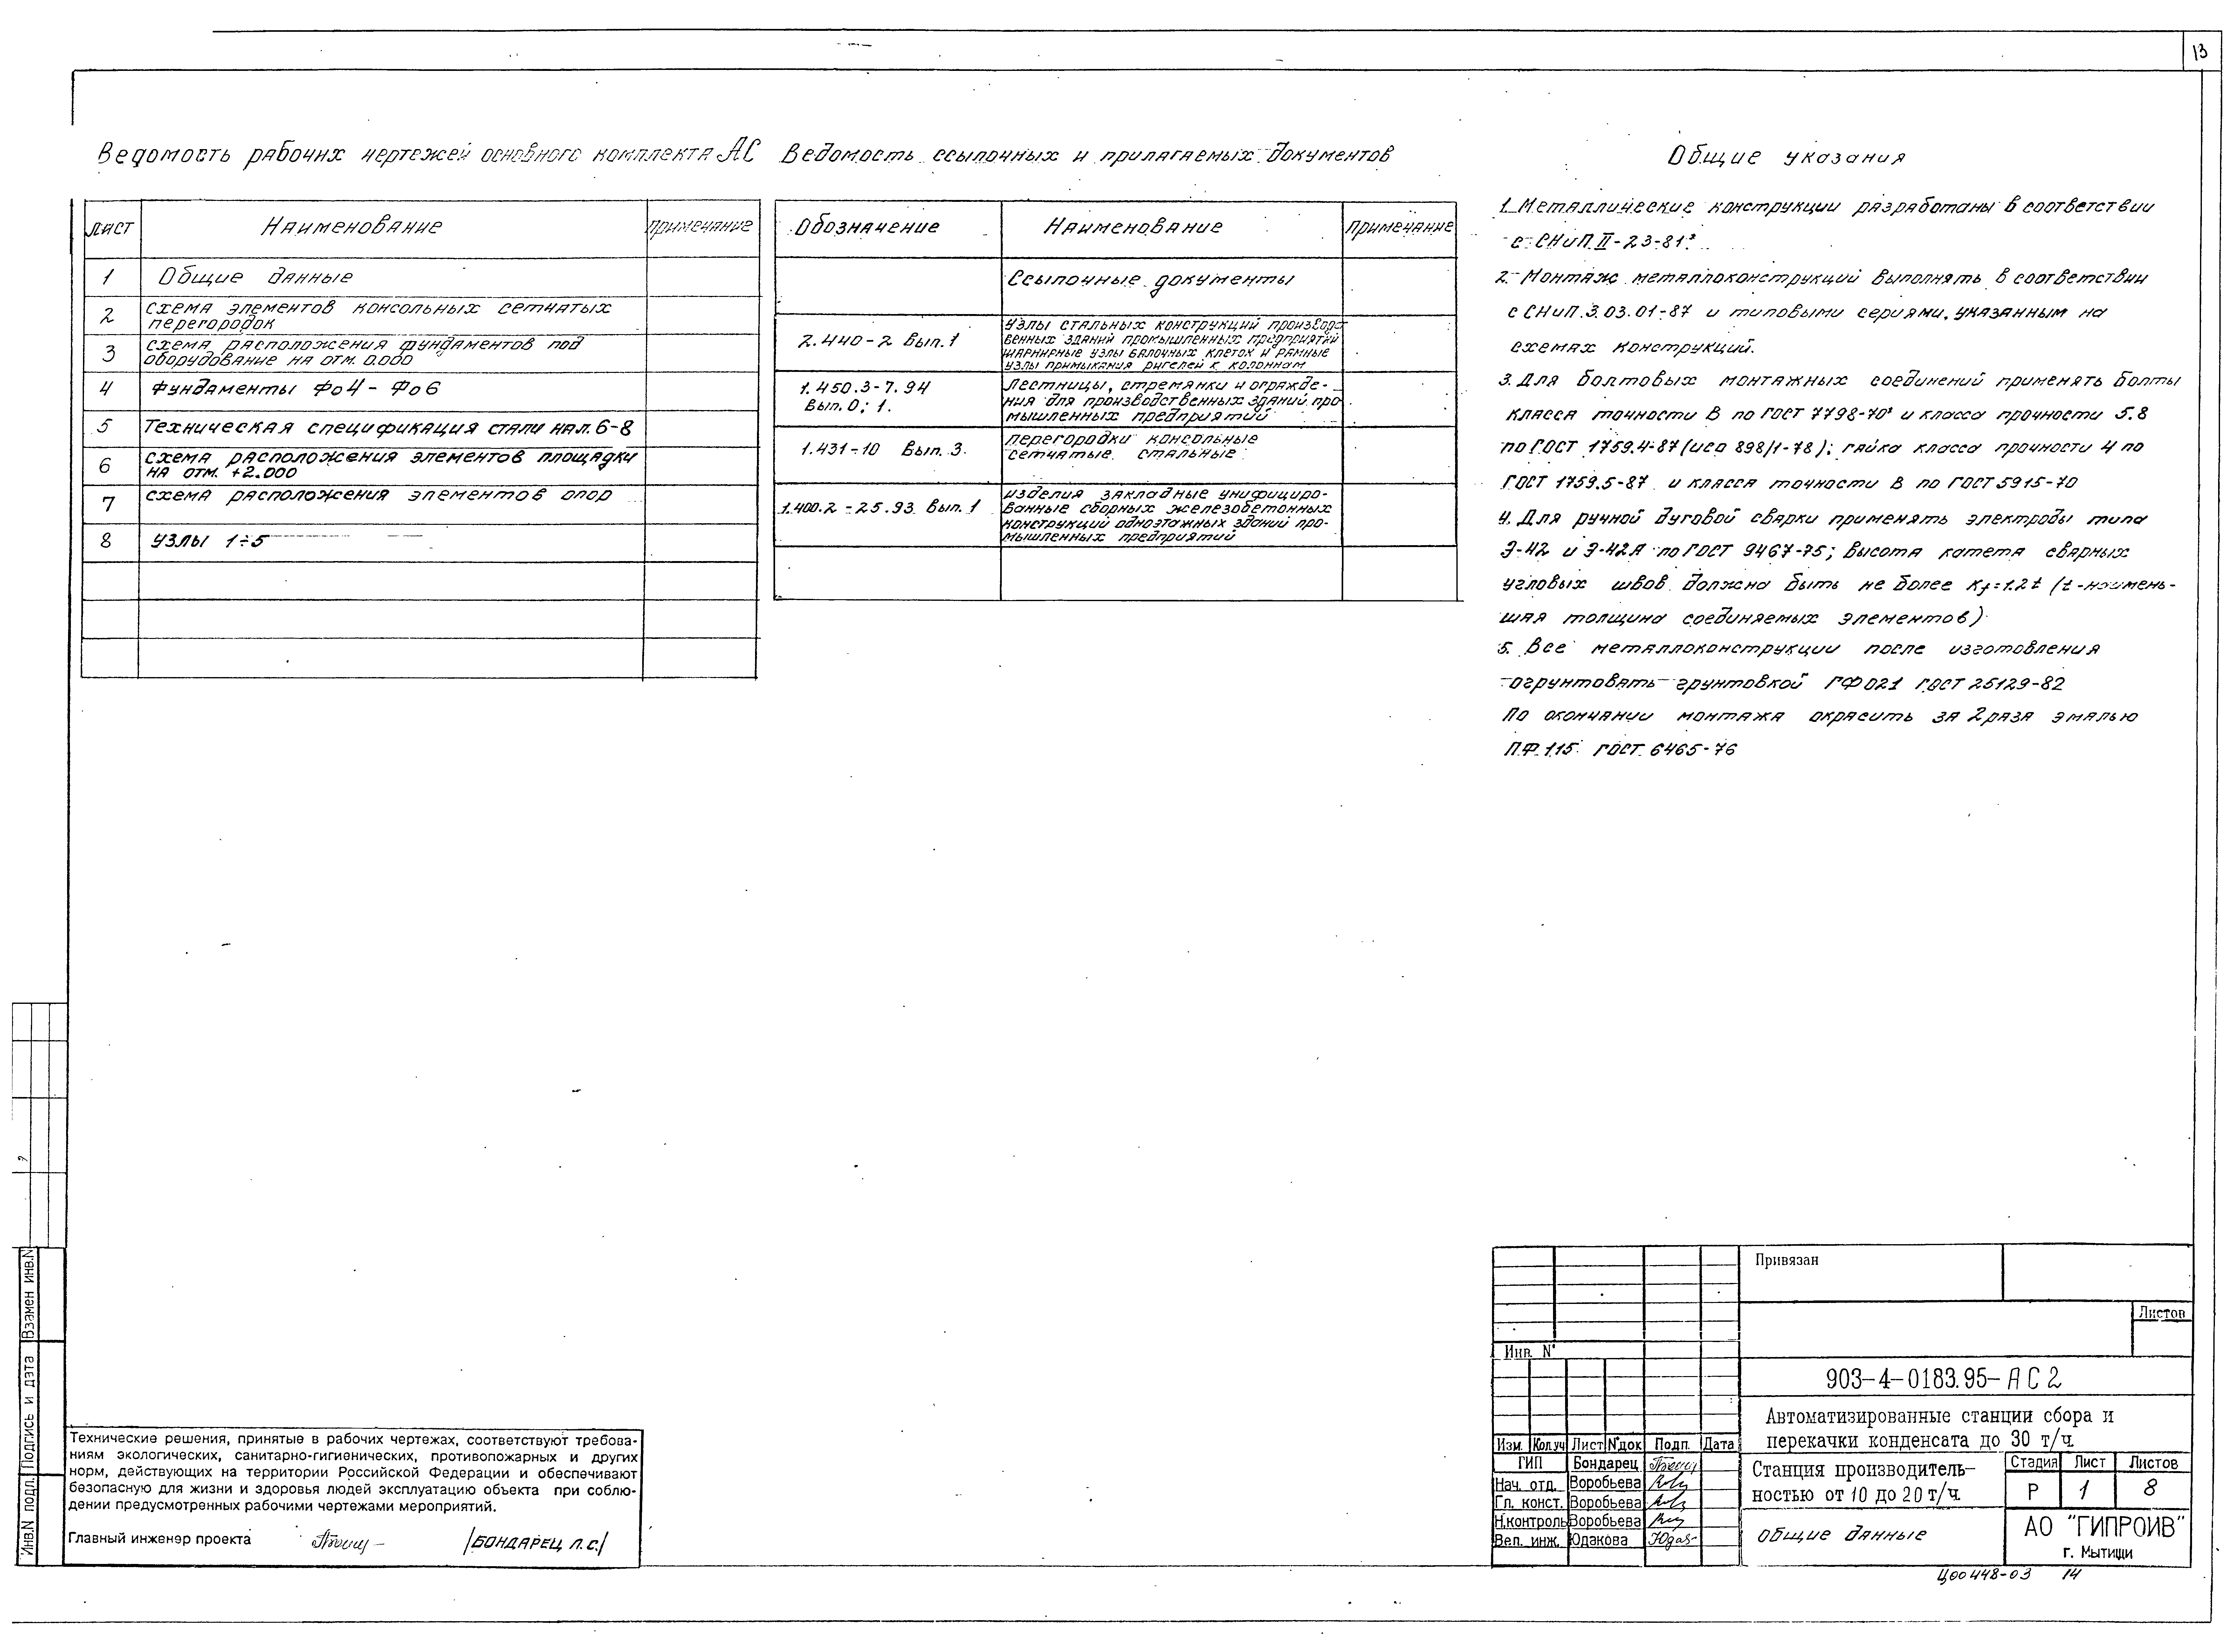 13
Ведомость рабочих чертежей основного комплекта АС
лист Наименование примечание
1 Общие данные
2 схема элементов консольных сетчатых
перегородок
3 схема расположения фундаментов под
оборудование на отм. 0.000
4 Фундаменты Фо4 - Фо6
5 Техническая спецификация стали на л. 6-8
6 схема расположения элементов площадки
на отм. +2.000
7 схема расположения элементов опор
8 узлы 1÷5
Ведомость ссылочных и прилагаемых документов
Обозначение Наименование примечание
Ссылочные документы
2.440-2 вып.1 узлы стальных конструкций производс-
венных зданий промышленных предприятий
шарнирные узлы балочных клеток и рамные
узлы примыкания ригелей к колоннам
1.450.3-7.94 Лестницы, стремянки и огражде-
Вып. 0; 1. ния для производственных зданий про
мышленных предприятий
1.431-10 Вып. 3. перегородки консольные
сетчатые стальные
1.400.2-25.93 Вып. 1 изделия закладные унифициро-
ванные сборных железобетонных
конструкций одноэтажных зданий про-
мышленных предприятий
Общие указания
1. Металлические конструкции разработаны в соответствии
с СНиП II-23-81*
2. Монтаж металлоконструкций выполнять в соответствии
с СНиП 3.03.01-87 и типовыми сериями, указанным на
схемах конструкций.
3. Для болтовых монтажных соединений применять болты
класса точности В по ГОСТ 7798-70* и класса прочности 5.8
по ГОСТ 1759.4-87 (исо 898/1-78); гайка класса прочности 4 по
ГОСТ 1759.5-87 и класса точности В по ГОСТ 5915-70
4. Для ручной дуговой сварки применять электроды типа
Э-42 и Э-42А по ГОСТ 9467-75; высота катета сварных
угловых швов должна быть не более Kf=1.2t (t-наимень-
шая толщина соединяемых элементов)
5. Все металлоконструкции после изготовления
огрунтовать грунтовкой ГФ021 ГОСТ 25129-82
По окончании монтажа окрасить за 2 раза эмалью
ПФ.115 ГОСТ 6465-76
Взамен инв.N
Подпись и дата
Инв.N подл.
Технические решения, принятые в рабочих чертежах, соответствуют требова-
ниям экологических, санитарно-гигиенических, противопожарных и других
норм, действующих на территории Российской Федерации и обеспечивают
безопасную для жизни и здоровья людей эксплуатацию объекта при соблю-
дении предусмотренных рабочими чертежами мероприятий.
Главный инженер проекта /БОНДАРЕЦ Л.С./
Привязан
Листов
Инв. N°
903-4-0183.95-АС2
Автоматизированные станции сбора и
перекачки конденсата до 30 т/ч.
Изм. Кол.уч Лист N°док Подп. Дата
ГИП Бондарец
Нач. отд. Воробьева
Гл. конст. Воробьева
Н.контроль Воробьева
Вел. инж. Юдакова
Станция производитель-
ностью от 10 до 20 т/ч.
Стадия Лист Листов
Р 1 8
общие данные
АО "ГИПРОИВ"
г. Мытищи
Ц00448-03 14